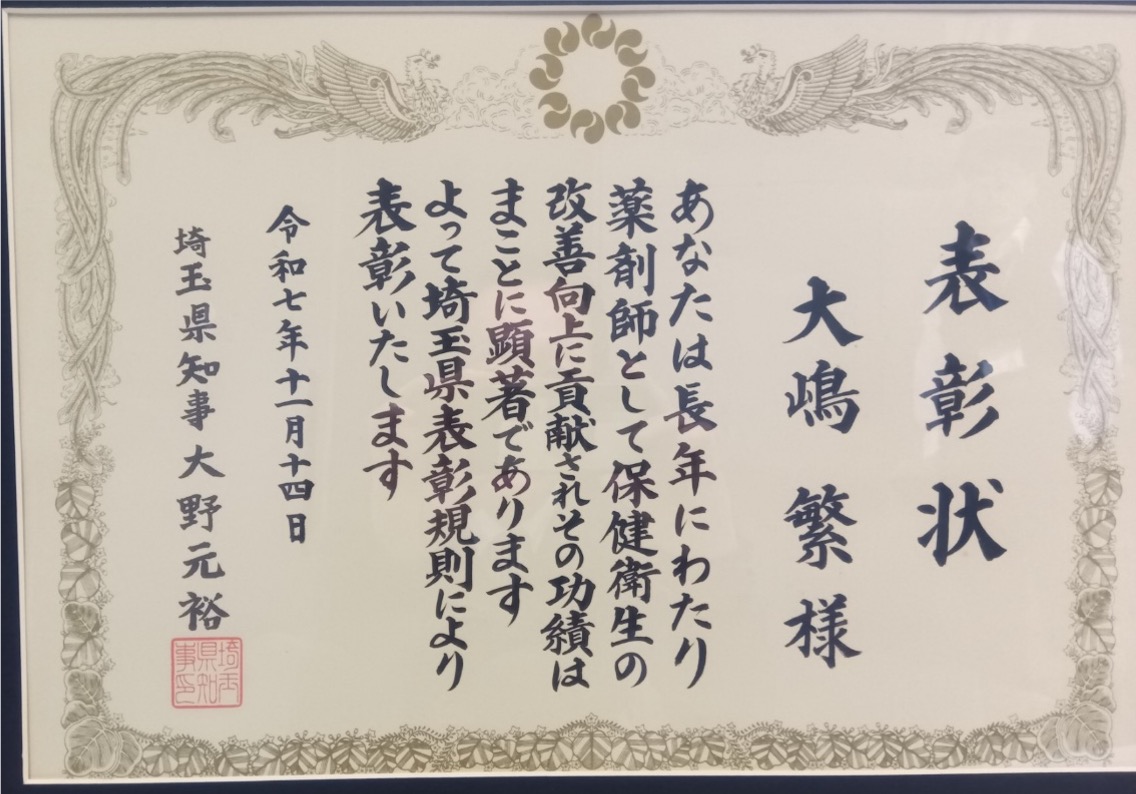 表彰状
大嶋繁様
あなたは長年にわたり
薬剤師として保健衛生の
改善向上に貢献されその功績は
まことに顕著であります
よって埼玉県表彰規則により
表彰いたします
令和七年十一月十四日
埼玉県知事大野元裕
埼玉
県知
事印